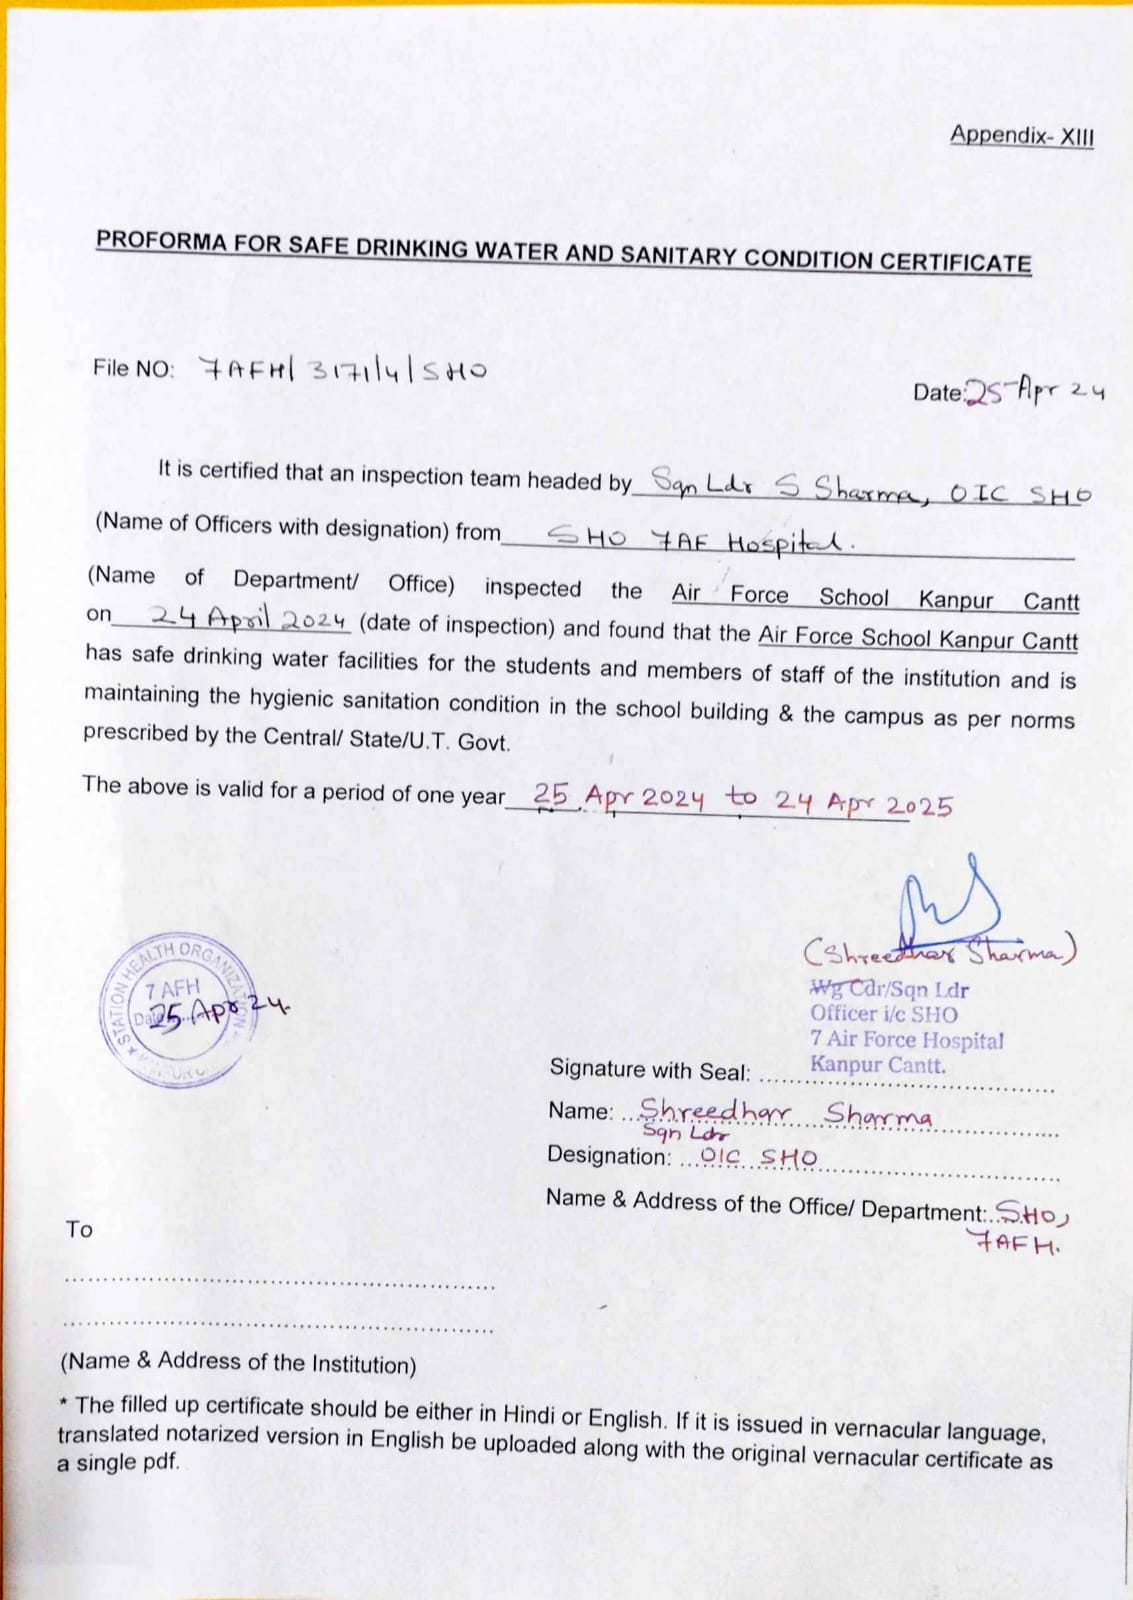 Appendix- XIII
PROFORMA FOR SAFE DRINKING WATER AND SANITARY CONDITION CERTIFICATE
File NO: 7AFH/3171/4/SHO
Date: 25-Apr 24
It is certified that an inspection team headed by Sqn Ldr S Sharma, OIC SHO
(Name of Officers with designation) from SHO 7AF Hospital.
(Name of Department/ Office) inspected the Air Force School Kanpur Cantt
on 24 April 2024 (date of inspection) and found that the Air Force School Kanpur Cantt
has safe drinking water facilities for the students and members of staff of the institution and is
maintaining the hygienic sanitation condition in the school building & the campus as per norms
prescribed by the Central/ State/U.T. Govt.
The above is valid for a period of one year 25 Apr 2024 to 24 Apr 2025
(Shreedhar Sharma)
Wg Cdr/Sqn Ldr
Officer i/c SHO
7 Air Force Hospital
Kanpur Cantt.
STATION HEALTH ORGANIZATION
7 AFH
Date 25 Apr 24.
Signature with Seal: ..........
Name: Shreedhar Sharma
Sqn Ldr
Designation: OIC SHO
Name & Address of the Office/ Department: SHO,
7AFH.
To
..........
..........
(Name & Address of the Institution)
* The filled up certificate should be either in Hindi or English. If it is issued in vernacular language,
translated notarized version in English be uploaded along with the original vernacular certificate as
a single pdf.